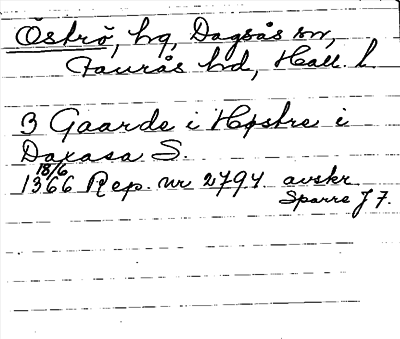 Öströ, hg, Dagsås sn,
Faurås hd, Hall. l.
3 Gaarde i Høstre i
Daxasa S.
18/6
1366 Rep. nr 2794 avskr
Sparre J 7.